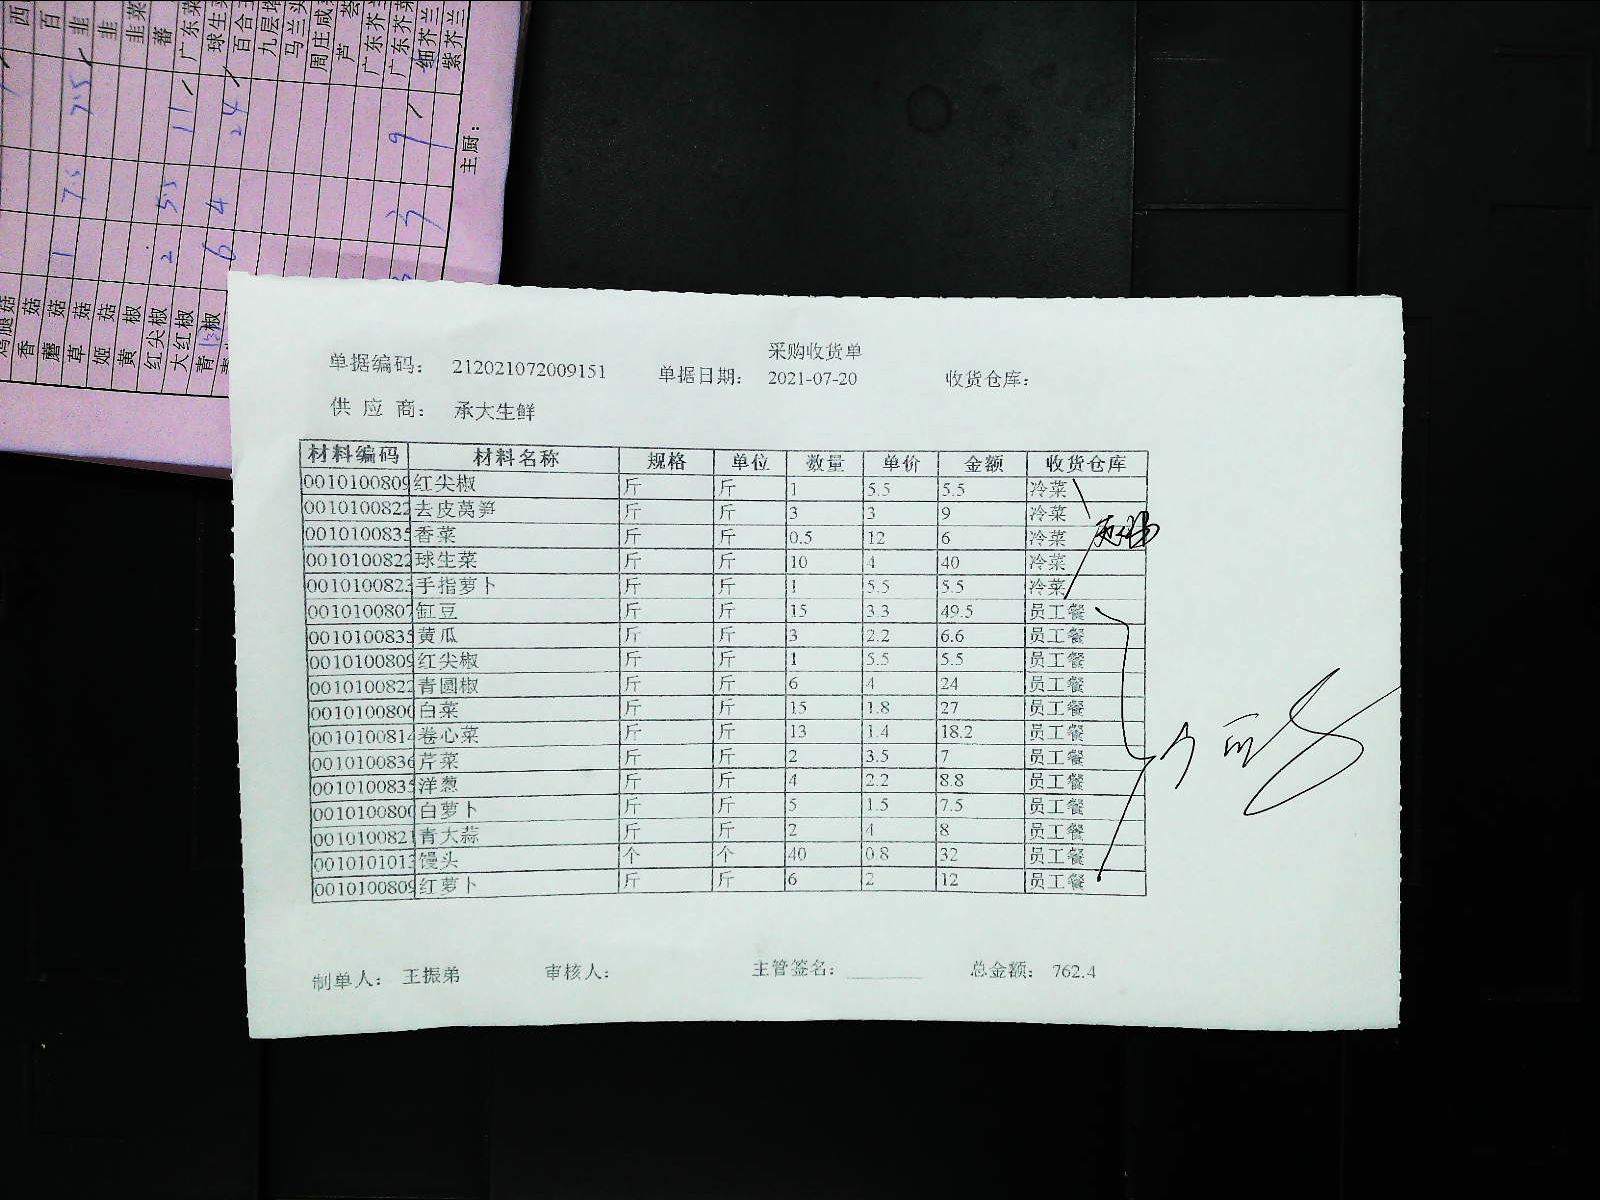 西
百
韭
韭
韭菜
蕃
广东菜
球生菜
百合
九层塔
马兰头
周庄咸菜
芦荟
广东芥兰
广东芥菜
细芥兰
紫芥兰
7.5 11 24 9
主厨：
1 7.5
2 5.5
6 4
3
鸡腿菇
香菇
蘑菇
草菇
姬菇
黄椒
红尖椒
大红椒
青椒
采购收货单
单据编码： 212021072009151 单据日期： 2021-07-20 收货仓库：
供应商： 承大生鲜
材料编码 材料名称 规格 单位 数量 单价 金额 收货仓库
0010100809 红尖椒 斤 斤 1 5.5 5.5 冷菜
0010100822 去皮莴笋 斤 斤 3 3 9 冷菜
0010100835 香菜 斤 斤 0.5 12 6 冷菜
0010100822 球生菜 斤 斤 10 4 40 冷菜
0010100823 手指萝卜 斤 斤 1 5.5 5.5 冷菜
0010100807 缸豆 斤 斤 15 3.3 49.5 员工餐
0010100835 黄瓜 斤 斤 3 2.2 6.6 员工餐
0010100809 红尖椒 斤 斤 1 5.5 5.5 员工餐
0010100822 青圆椒 斤 斤 6 4 24 员工餐
0010100800 白菜 斤 斤 15 1.8 27 员工餐
0010100814 卷心菜 斤 斤 13 1.4 18.2 员工餐
0010100836 芹菜 斤 斤 2 3.5 7 员工餐
0010100835 洋葱 斤 斤 4 2.2 8.8 员工餐
0010100800 白萝卜 斤 斤 5 1.5 7.5 员工餐
0010100821 青大蒜 斤 斤 2 4 8 员工餐
0010101013 馒头 个 个 40 0.8 32 员工餐
0010100809 红萝卜 斤 斤 6 2 12 员工餐
制单人： 王振弟 审核人： 主管签名： 总金额： 762.4